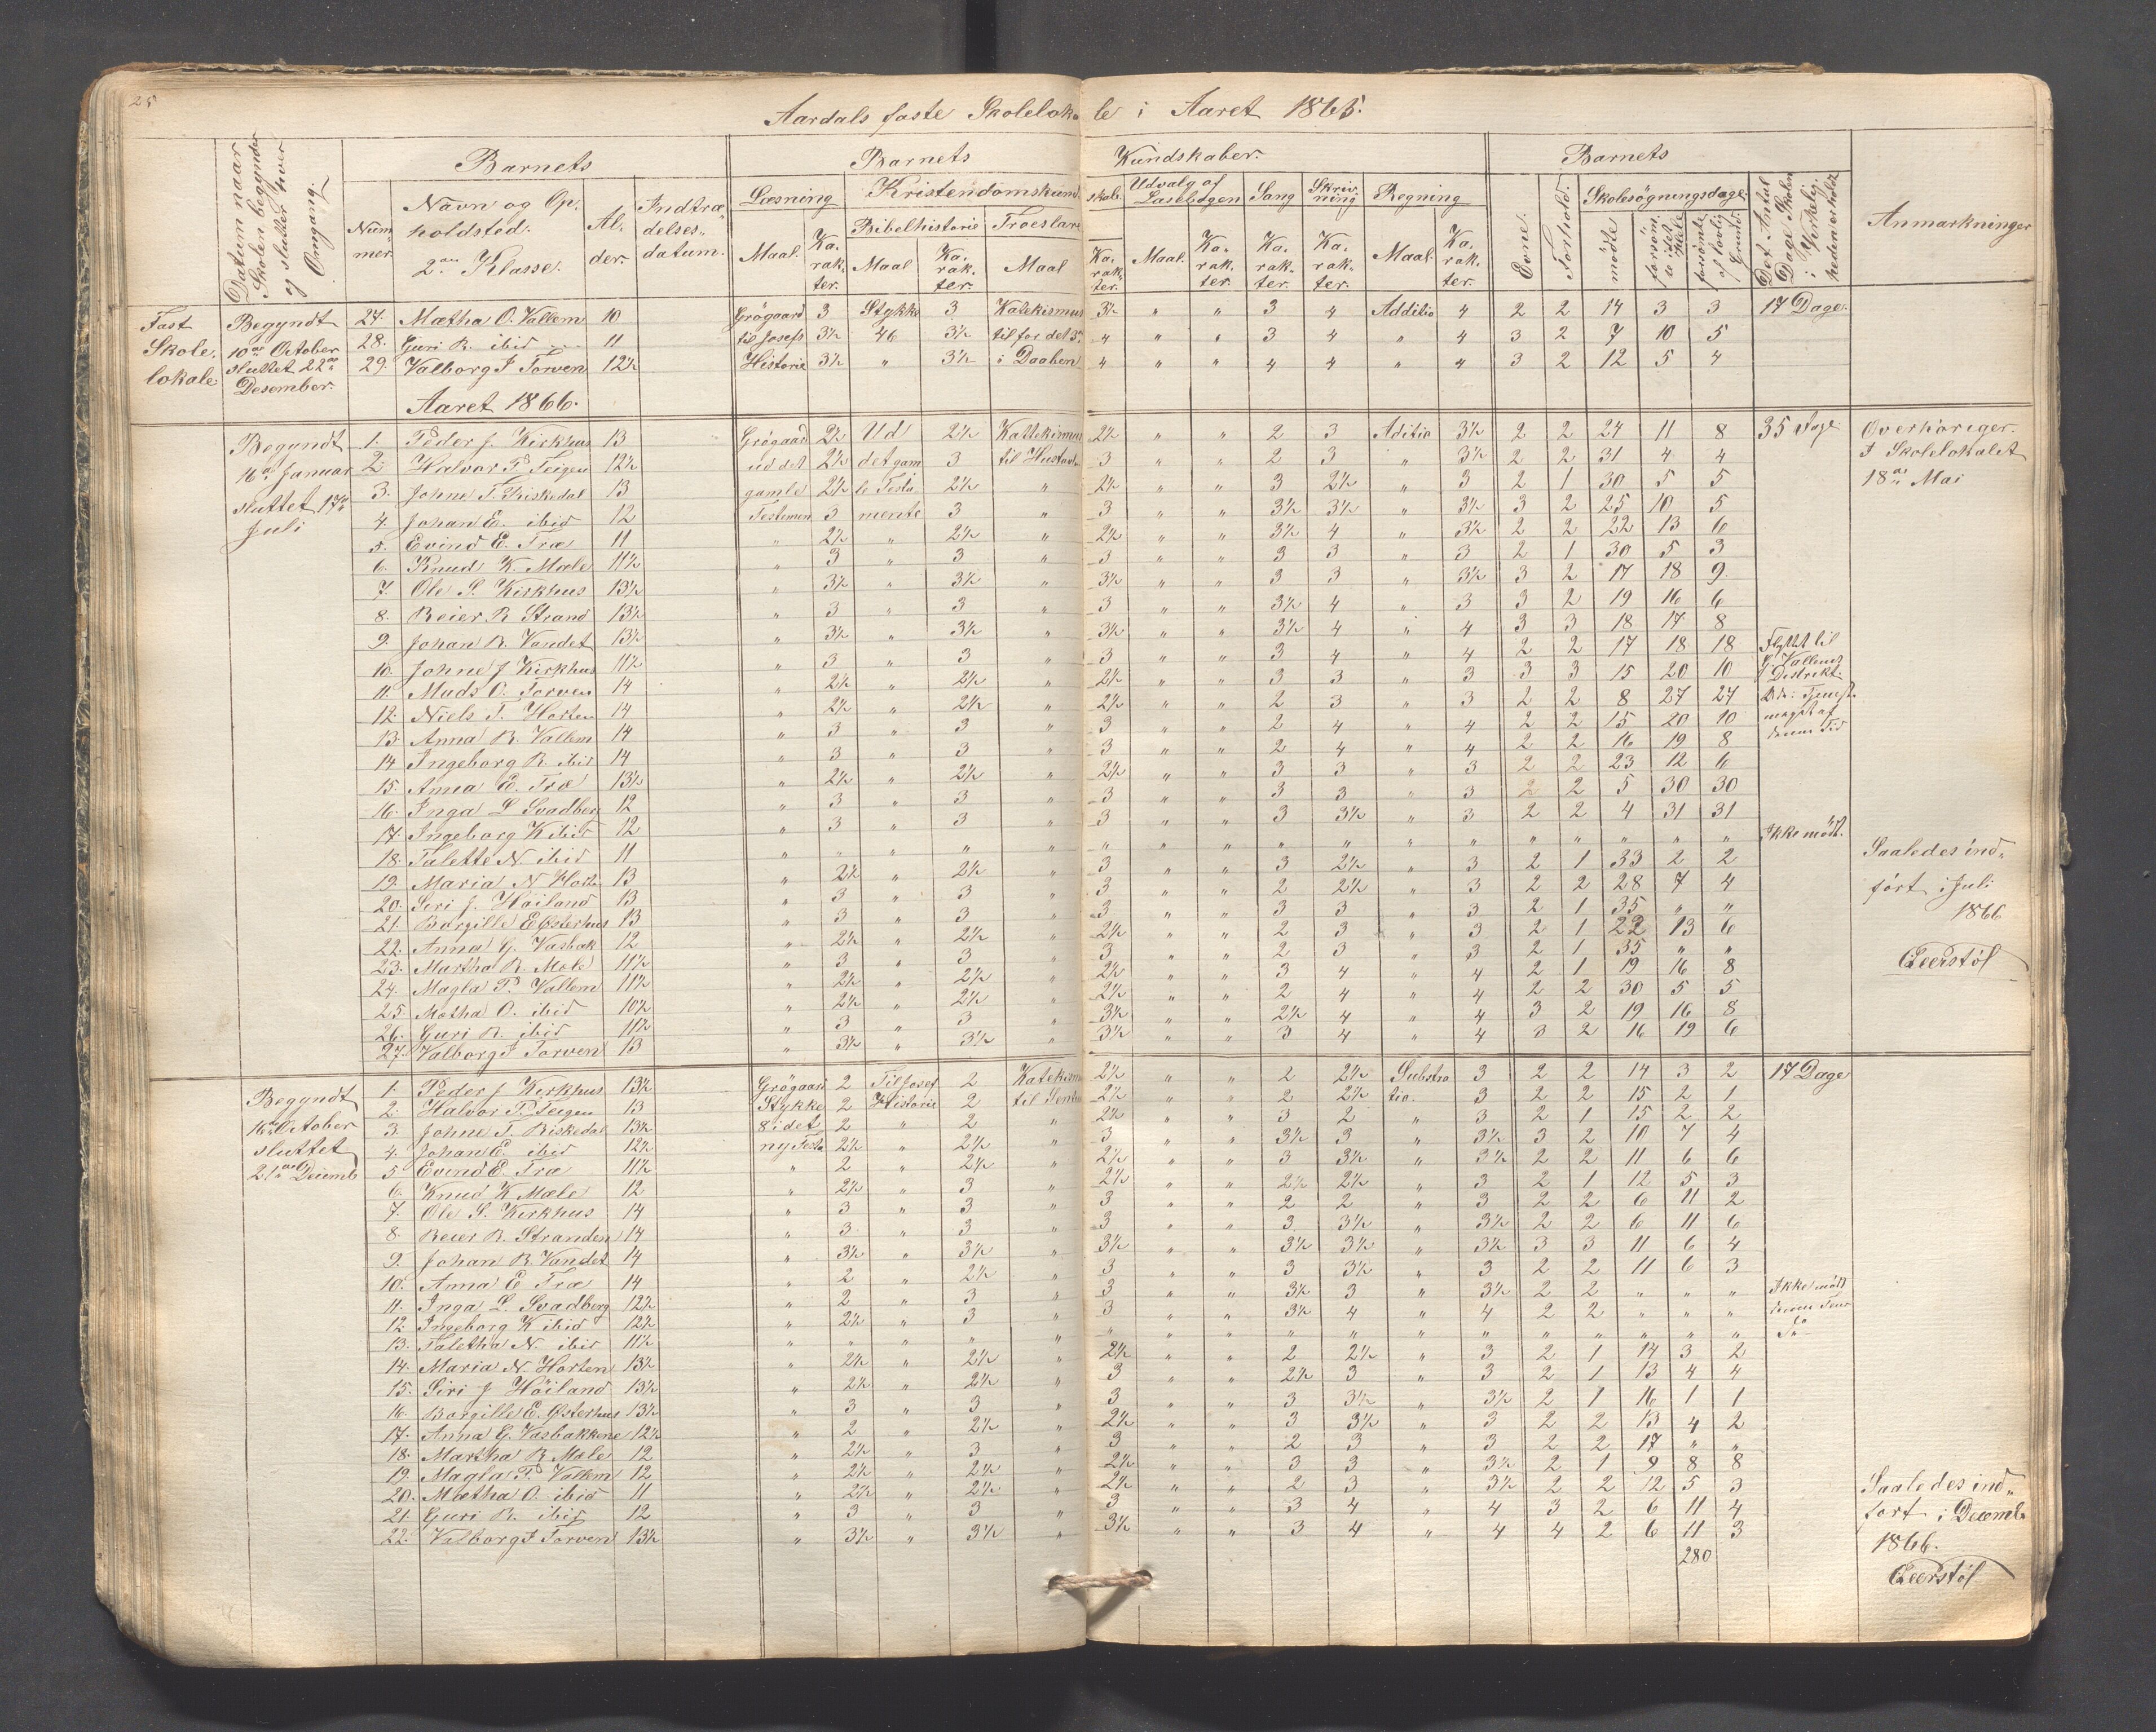 25
Aardals faste Skolelokale i Aaret 1865.
Datum naar Skolen begynder og slutter hver Omgang.
Barnets
Nummer.
Navn og Opholdsted.
2den Klasse.
Alder.
Indtrædelsesdatum.
Barnets Kundskaber.
Læsning
Maal.
Karakter.
Kristendomskundskab.
Bibelhistorie
Maal
Karakter.
Troeslære
Maal
Karakter.
Udvalg af Læsebogen
Maal.
Karakter.
Sang
Karakter.
Skrivning
Karakter.
Regning
Maal.
Karakter.
Barnets
Evne.
Forhold.
Skolesögningsdage.
mödte
forsömte i det Hele
forsömte af lovlig Grund.
Det Antal Dage Skolen i Virkeligheden er holdt
Anmærkninger
Fast Skole, lokale
Begyndt 10de October sluttet 22de Desember.
27. Mætha O. Vallem 10 Grögaard 3 Stykke 3 Katekismus 3½ " " 3 4 Additio 4 2 2 14 3 3 17 Dage.
28. Guri R. ibid 11 til Josefs 3½ 46 3½ til for det 3die 4 " " 3 4 " 4 3 2 7 10 5
29. Valborg J Torven 12½ Historie 3½ " 3½ i Daaben 4 " " 4 4 " 4 3 2 12 5 4
Aaret 1866.
Begyndt 16de Januar sluttet 17de Juli
1. Peder J. Kirkhus 13 Grögaard 2½ Ud 2½ Kattekismus 2½ " " 2 3 Aditio 3½ 2 2 24 11 8 35 Dage
2 Halvor P. Teigen 12½ ud det 2½ det gam 3 til Hustavlen 3 " " 2 3 " 3½ 2 2 31 4 4
3. Johne T. Riskedal 13 gamle 2½ le Testa 2½ " 2½ " " 3 2½ " 3 2 1 30 5 5
4. Johan E. ibid 12 Testemen 3 mente 3 " 3 " " 3½ 3½ " 3½ 3 2 25 10 5
5. Evind E. Træ 11 " 2½ " 2½ " 2½ " " 3½ 4 " 3½ 2 2 22 13 6
6. Knud K. Mæle 11½ " 3 " 3 " 3 " " 3 3 " 3 2 1 30 5 3
7. Ole S. Kirkhus 13½ " 3½ " 3½ " 3½ " " 3 3 " 3½ 3 2 17 18 9.
8. Reier R Strand 13½ " 3 " 3 " 3 " " 3½ 4 " 3 3 2 19 16 6
9. Johan R. Vandet 13½ " 3½ " 3½ " 3½ " " 3½ 4 " 4 3 3 18 17 8
10. Johne J Kirkhus 11½ " 3 " 3 " 3 " " 3 4 " 4 2 2 17 18 18 Flyttet til G. Vallems Distrikt.
11. Mads O. Torven 14 " 2½ " 2½ " 2½ " " 3 3 " 3 3 3 15 20 10
12. Niels T. Horten 14 " 2½ " 2½ " 2½ " " 2 3 " 3 2 2 8 27 27
13. Anna R. Vallem 14 " 3 " 3 " 3 " " 2 4 " 4 2 2 15 20 10
14 Ingeborg R. ibid 14 " 3 " 3 " 3 " " 2 4 " 4 2 2 16 19 8
15. Anna E. Træ 13½ " 2½ " 2½ " 2½ " " 3 3 " 3 2 2 23 12 6
16. Inga L Svadberg 12 " 3 " 3 " 3 " " 3 3 " 3 2 2 5 30 30
17. Ingeborg K ibid 12 " 3 " 3 " 3 " " 3 3½ " 3 2 2 4 31 31
18. Talette N. ibid 11 " " " " " " " " " " " " " " " " " Ikke mödt.
19. Maria N Horten 13 " 2½ " 2½ " 3 " " 3 2½ " 3 2 1 33 2 2
20. Siri J. Höiland 13 " 3 " 3 " 3 " " 2 2½ " 3 2 2 28 7 4
21. Borgille E Østerhus 13 " 3 " 3 " 3 " " 3 3 " 3 2 1 35 " "
22. Anna G. Vasbak 12 " 2½ " 2½ " 2½ " " 2 3 " 3 2 1 22 13 6
23. Martha R. Mæle 11½ " 3 " 3 " 3 " " 2 3 " 3 2 1 35 " "
24. Magla P. Vallem 11½ " 2½ " 2½ " 2½ " " 3 4 " 4 2 1 19 16 8
25 Mætha O. ibid 10½ " 2½ " 2½ " 2½ " " 2 4 " 4 2 2 30 5 5
26. Guri R. ibid 11½ " 3 " 3 " 3½ " " 2½ 4 " 4 3 2 19 16 8
27. Valborg J Torven 13 " 3½ " 3½ " 3½ " " 3 4 " 4 3 2 16 19 6
Overhöriger. I Skolelokalet 18de Mai
Saaledes indfört i Juli 1866
Geerstöl
Begyndt 16de October sluttet 21de Decemb
1. Peder J. Kirkhus 13½ Grögaard 2 Til Josef 2 Katekism 2½ " " 2 2½ Substra 3 2 2 14 3 2 17 Dage
2. Halvor P. Teigen 13 Stykke 2 Historie 2 til 2½ " " 2 2½ tio. 3 2 2 15 2 1
3 Johne T. Riskedal 13½ 8 i det 2 " 2 " 2½ " " 3 2 " 3 2 1 15 2 2
4. Johan E. ibid 12½ ny Testa 2½ " 2½ " 3 " " 3½ 3 " 3½ 3 2 10 7 4
5 Evend E. Træ 11½ " 2 " 2½ " 2½ " " 3 3½ " 3½ 2 2 11 6 6
6. Knud K Mæle 12 " 2½ " 3 " 2½ " " 2½ 2½ " 3 2 1 12 5 3
7. Ole S. Kirkhus 14 " 3 " 3 " 3 " " 2 2 " 3 2 2 6 11 2
8. Reier R. Stranden 14 " 3 " 3 " 3 " " 3 3½ " 3½ 2 2 6 11 6
9. Johan R. Vandet 14 " 3½ " 3½ " 3½ " " 3½ 3½ " 3½ 3 3 11 6 4
10. Anna E Træ 14 " 2 " 2½ " 3 " " 3 3½ " 3 2 2 11 6 3
11. Inga L. Svadberg 12½ " 2 " 3 " 3 " " 3½ 3 " 3½ 2 2 " " " Ikke mödt
12 Ingeborg K ibid 12½ " 2½ " 3 " 3 " " 3½ 4 " 4 2 2 " " "
13. Taletha N. ibid 11½ " " " " " " " " " " " " " " " " "
14. Maria N. Horten 13½ " 2½ " 2½ " 2½ " " 2 2½ " 3 2 1 14 3 2
15. Siri J Höiland 13½ " 2½ " 2½ " 3 " " 2½ 3 " 3 2 1 13 4 4
16. Borgille E. Østerhus 13½ " 3 " 3 " 3 " " 3 3½ " 3½ 2 1 16 1 1
17. Anna G. Vasbakkene 12½ " 2 " 2½ " 2½ " " 3 3½ " 3 2 2 13 4 2
18. Martha R Mæle 12 " 2½ " 3 " 3 " " 2 3 " 3 2 2 17 " "
19. Magla P. Vallem 12 " 2½ " 2½ " 2½ " " 3 3 " 3½ 2 1 9 8 8
20. Mætha O. ibid 11 " 2½ " 2½ " 2½ " " 2 3 " 3½ 2 2 12 5 3
21. Guri R. ibid 12 " 3 " 3 " 3 " " 3 4 " 4 3 2 6 11 4
22. Valborg J Torven 13½ " 3½ " 3½ " 3½ " " 3 4 " 4 4 2 6 11 3
280
Saaledes indfört i Decemb. 1866.
Geerstöl